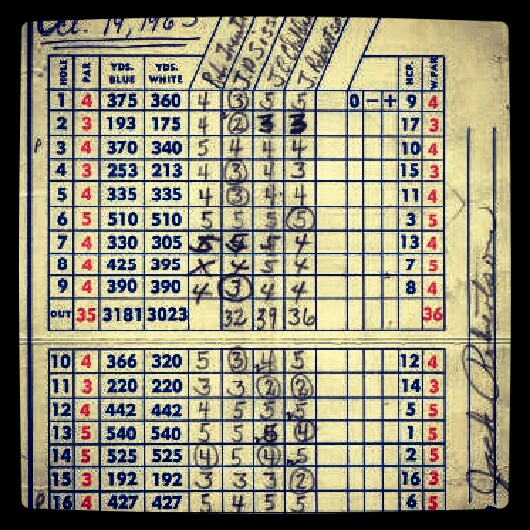 Oct. 19, 1963
HOLE PAR YDS. BLUE YDS. WHITE HCP. W.PAR
1 4 375 360 4 3 5 5 0 - + 9 4
2 3 193 175 4 2 3 3 17 3
P 3 4 370 340 5 4 4 4 10 4
4 3 253 213 4 3 4 3 15 3
5 4 335 335 4 3 4 4 11 4
6 5 510 510 5 5 5 5 3 5
7 4 330 305 5 5 5 4 13 4
8 4 425 395 X 4 5 4 7 5
9 4 390 390 4 3 4 4 8 4
OUT 35 3181 3023 32 39 36 36
10 4 366 320 5 3 4 5 12 4
11 3 220 220 3 3 2 2 14 3
12 4 442 442 4 5 5 5 5 5
13 5 540 540 5 5 6 4 1 5
14 5 525 525 4 5 4 5 2 5
15 3 192 192 3 3 3 2 16 3
P 16 4 427 427 5 4 5 5 6 5
Jack Robertson